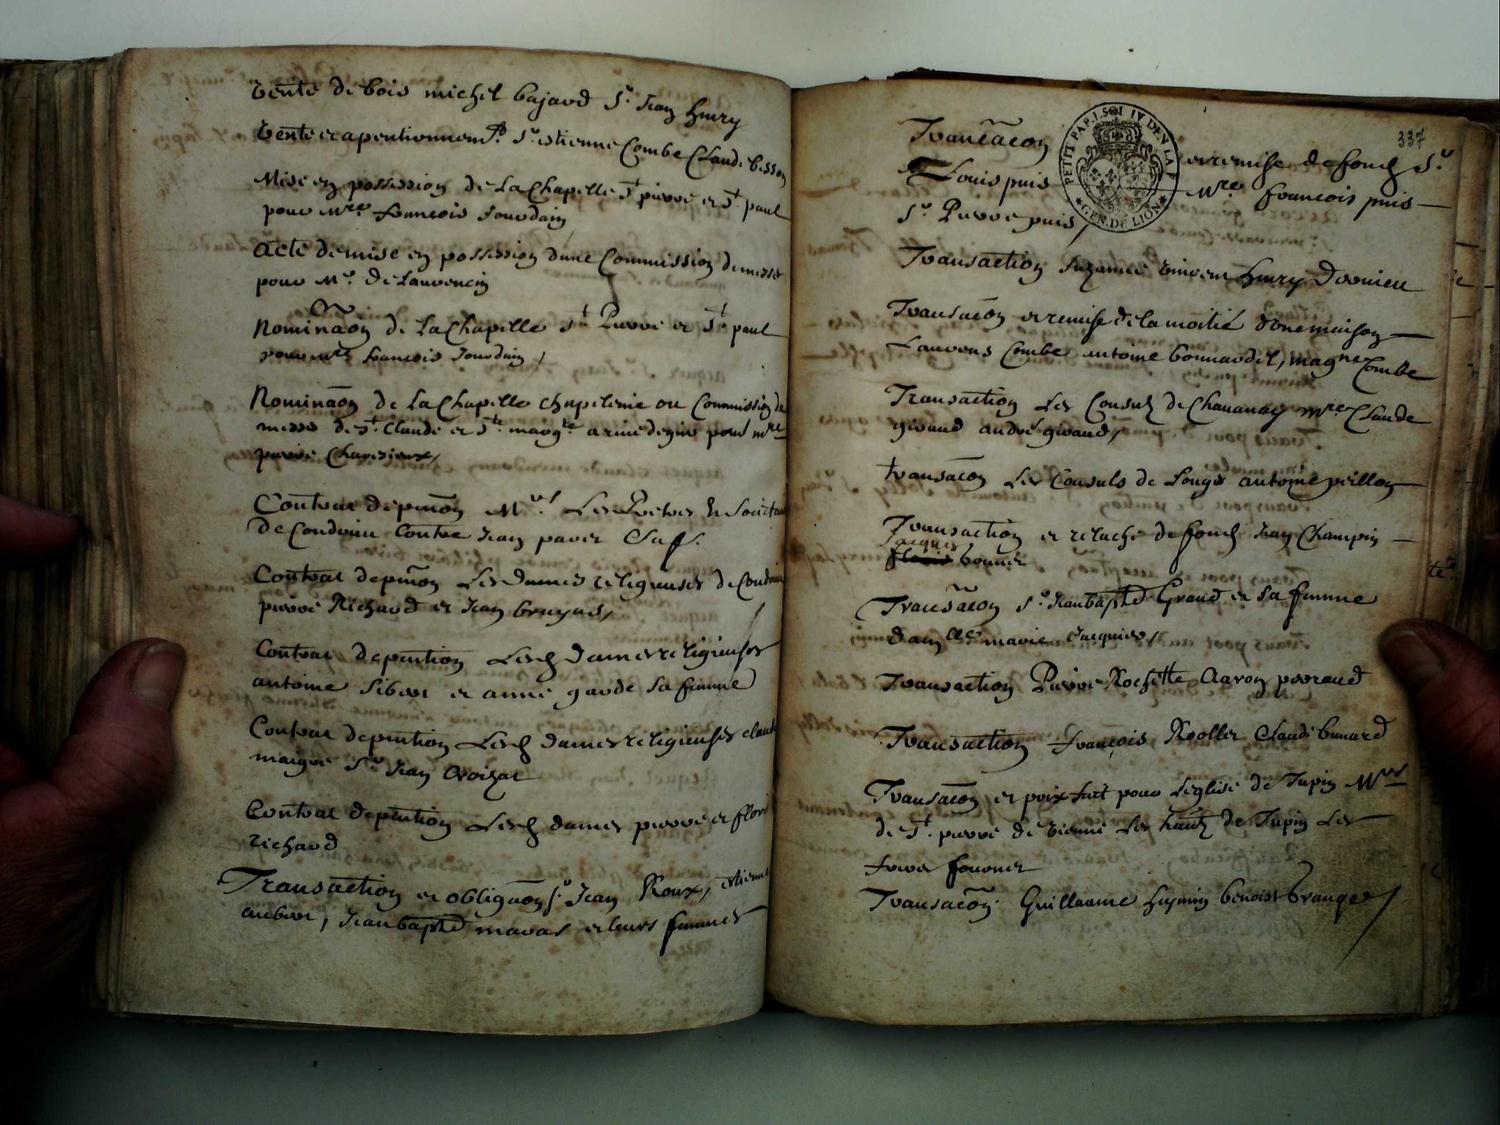 Vente de bois michel bajard Sr. Jean hury
Vente et apentionnemt. Sr. estienne Combe Claude besson
Mise en possession de La Chapelle St pierre et St paul
pour Mre. francois Jourdain
Acte de mise en possession dune Commission de messe
pour Mr. de Laurencin
Nominaon de La Chapelle St Pierre et St. paul
pour Mre francois Jourdain /
Nominaon de La Chapelle ou Commission de
messe de St. Claude et Ste. pour mre
pierre
Contrat de pnon Mrs. Les Societaires
de Condrieu Contre Jean paret
Contrat de pnon Les dames religieuses de Condrieu
pierre Richard et Jean bruyas /
Contrat de pention Lesd dames religieuses
antoine Sibert et anne garde sa femme
Contrat de pention Lesd dames religieuses claude
maigre Sr. Jean Croizat
Contrat de pention Lesd dames pierre et floris
richard
Transaction et obligaon Sr. Jean Roux, estienne
aubert, Jean bapte maras et leurs femmes
337
Transaction et remise de fond Sr.
Louis puis Mre francois puis
Sr. Pierre puis /
PETIT PAP. 1. SOL IV DEN. LA F.
GEN. DE LION
Transaction suzanne vincent hury dornieu
Transaon et remise de la moitié d'une maison
Laurens Combe antoine bonnardel, magne Combe
Transaction Les Consulz de Chauanay mre Claude
giraud andré giraud /
transaon Les Consuls de Longes antoine peillon
Transaction et relache de fond Jean Champin
Jacques bonnet
Transaon Sr. Jean bapte Giraud et sa femme
damlle marie Jacquier /
Transaction Pierre Rochette Claron perraud
Transaction françois Rollet Claude bunard
Transaon et prix fait pour Leglise de Tupin Mrs
de St. pierre de vienne Les de Tupin Les
Transaon Guillaume benoist